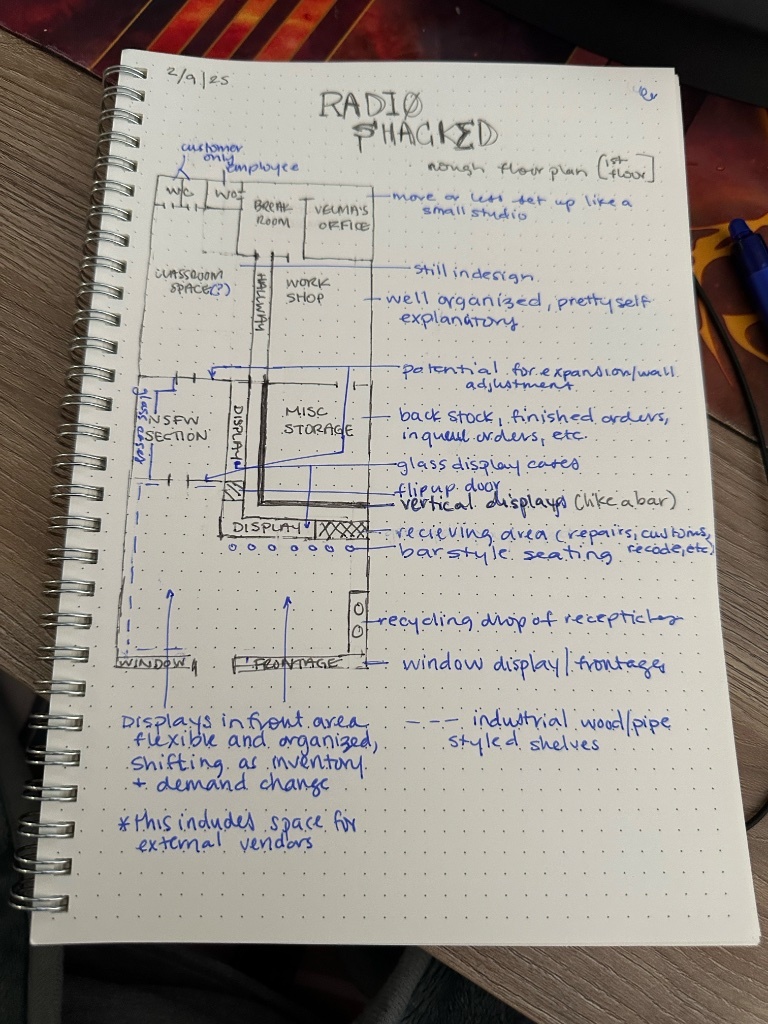 2/9/25
RADIO
SHACKED
rough floor plan [1st floor]
customer only
employee
WC
WC
BREAK ROOM
VELMA'S OFFICE
move or less set up like a
small studio
CLASSROOM
SPACE(?)
HALLWAY
WORK
SHOP
still in design
well organized, pretty self
explanatory
potential for expansion/wall
adjustment
glass cases
NSFW
SECTION
DISPLAY
MISC
STORAGE
back stock, finished orders,
in queue orders, etc.
glass display cases
flip up door
vertical displays (like a bar)
DISPLAY
recieving area (repairs, customs,
recode, etc)
bar style seating
recycling drop of recepticles
WINDOW
FRONTAGE
window display/frontage
Displays in front area
flexible and organized,
shifting as inventory
+ demand change
--- industrial wood/pipe
styled shelves
*this includes space for
external vendors